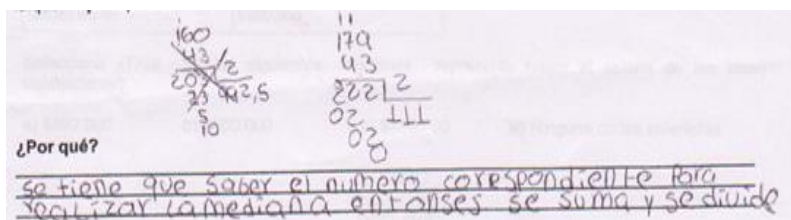 160
43
20 2
23 2,5
5
10
11
179
43
222 2
02 111
02
0
¿Por qué?
se tiene que saber el numero correspondiente para
realizar la mediana entonses se suma y se divide